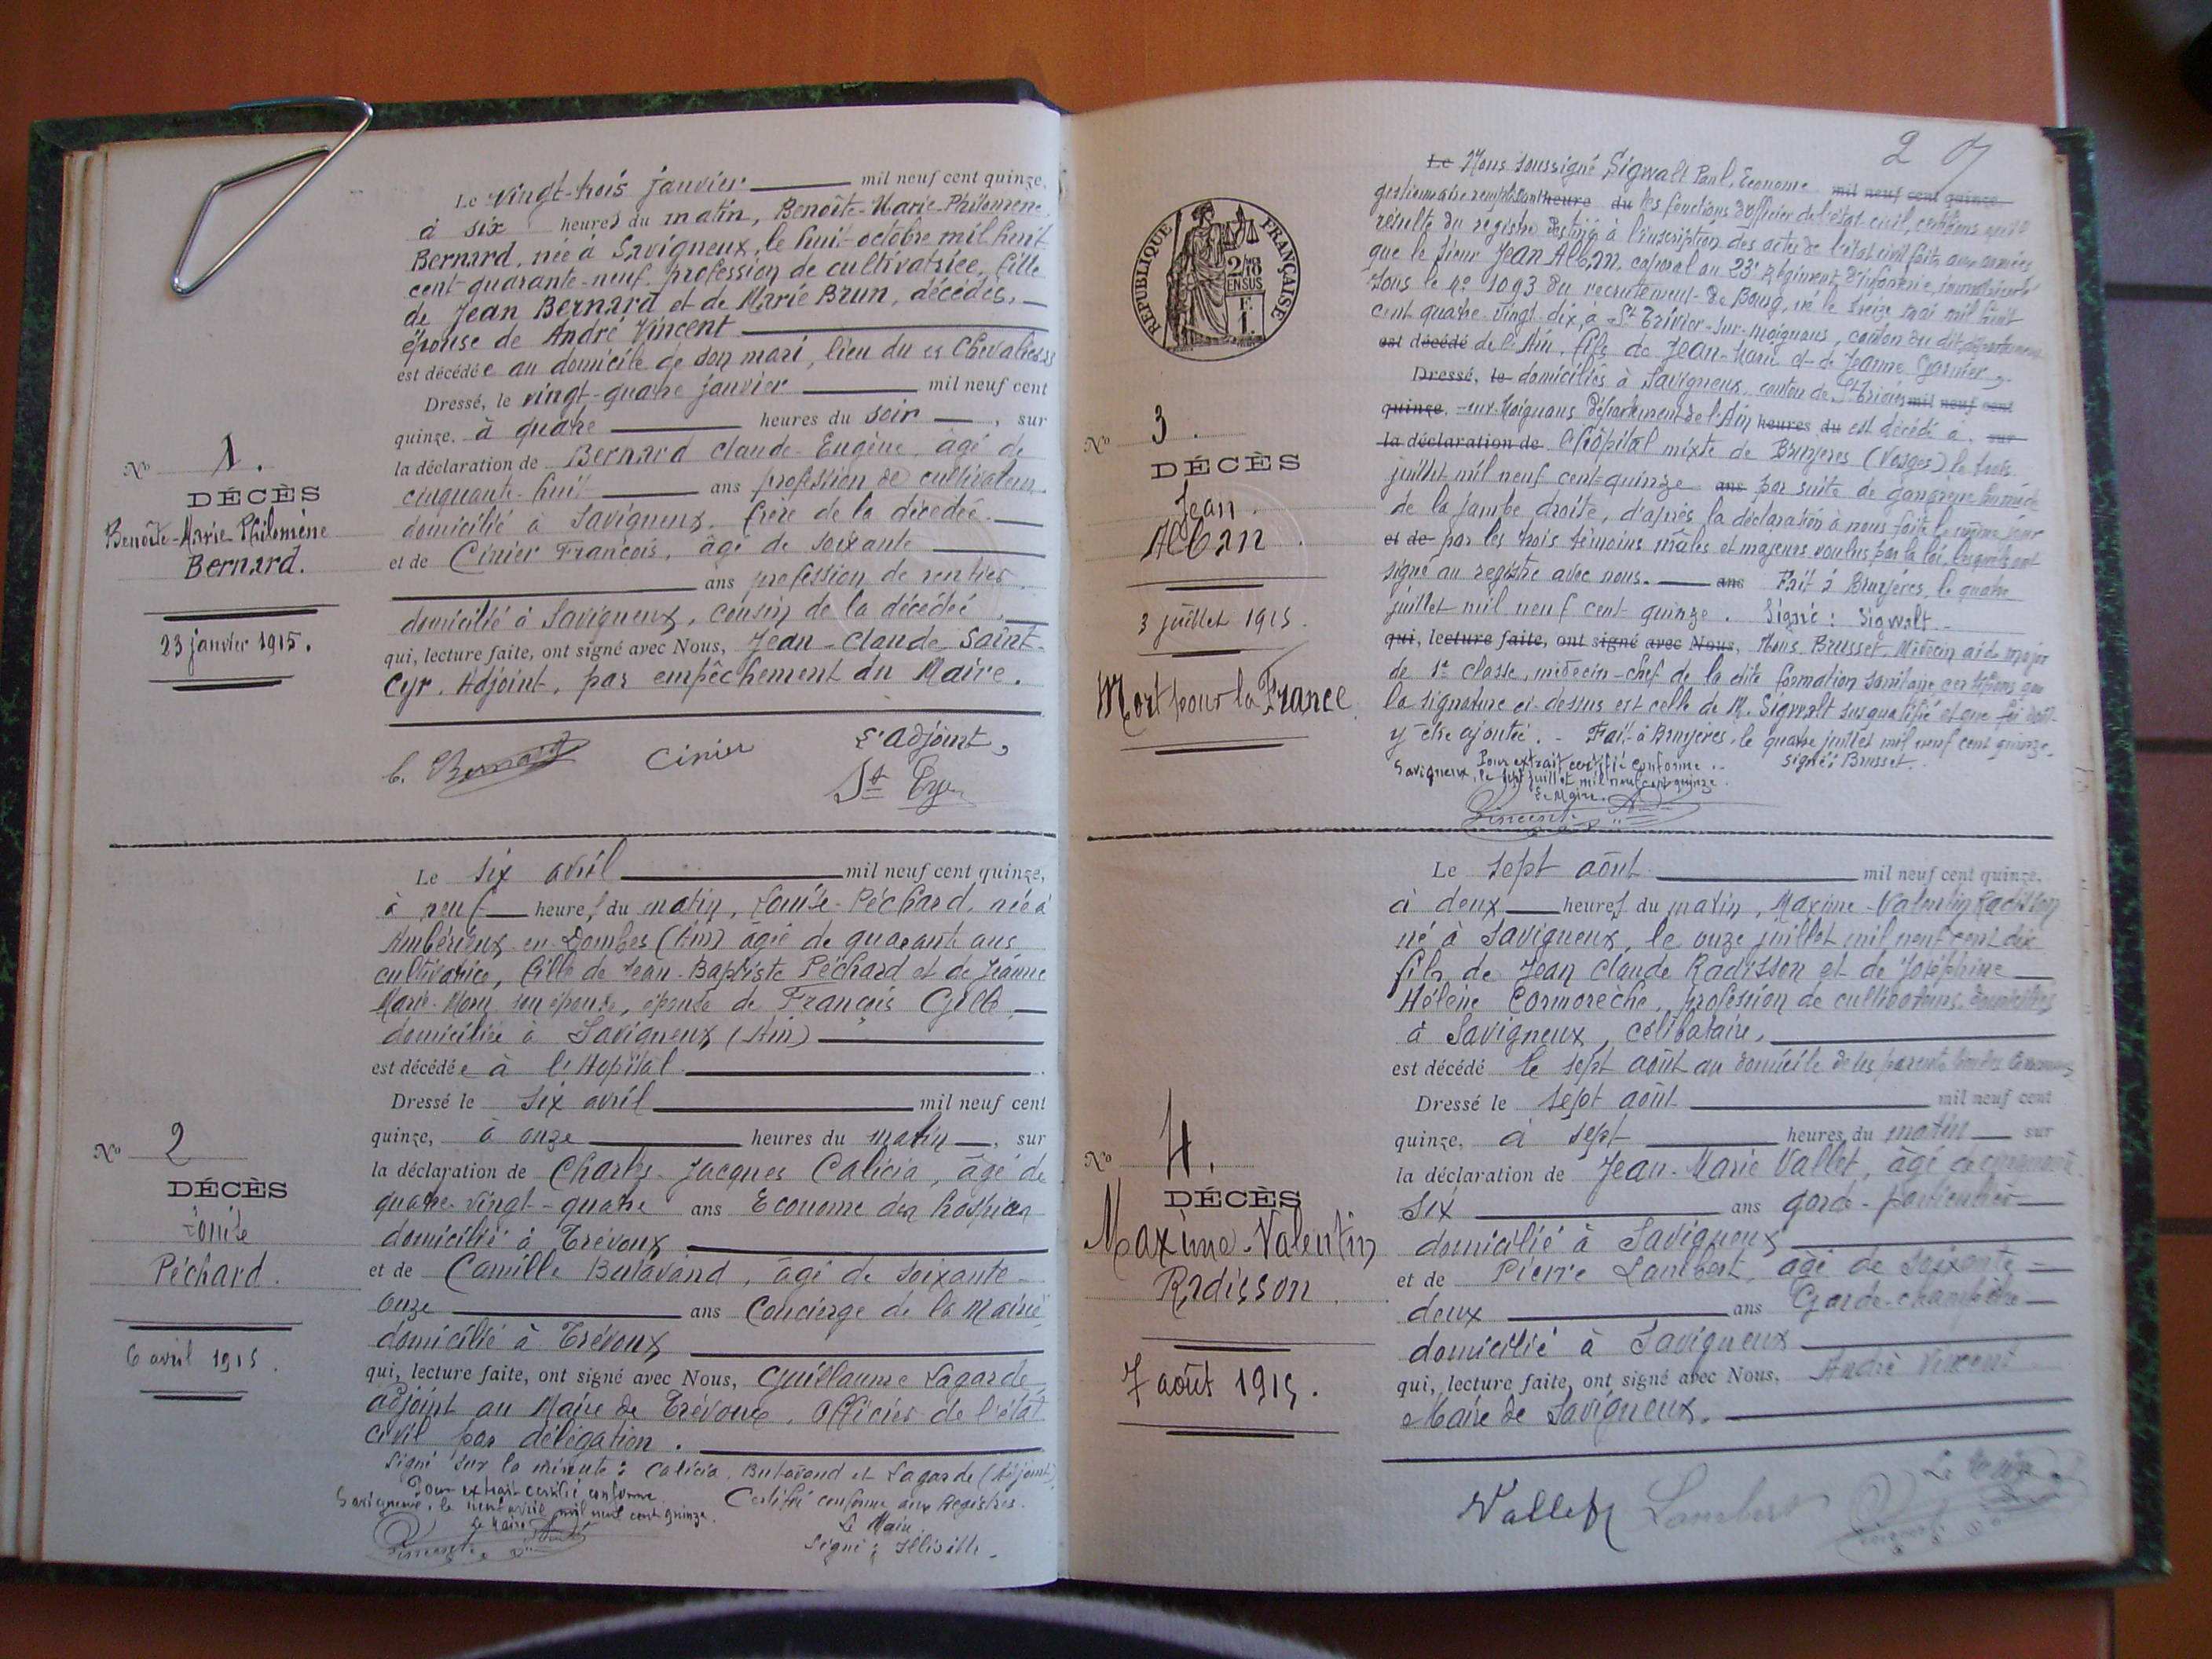 Le vingt-trois janvier mil neuf cent quinze,
à six heures du matin, Benoîte-Marie-Philomène
Bernard, née à Savigneux, le huit octobre mil huit
cent quarante-neuf, profession de cultivatrice, fille
de Jean Bernard et de Marie Brun, décédés,
épouse de André Vincent
est décédée au domicile de son mari, lieu du " Chevaliers"
Dressé, le vingt-quatre janvier mil neuf cent
quinze, à quatre heures du soir, sur
la déclaration de Bernard Claude-Eugène, âgé de
cinquante-huit ans profession de cultivateur
domicilié à Savigneux, frère de la décédée
et de Cinier François, âgé de soixante
ans profession de rentier
domicilié à Savigneux, cousin de la décédée,
qui, lecture faite, ont signé avec Nous, Jean-Claude Saint-
Cyr, Adjoint, par empêchement du Maire.
No 1.
DÉCÈS
Benoîte-Marie Philomène
Bernard.
23 janvier 1915.
C. Bernard Cinier L'adjoint,
St Cyr
Le six avril mil neuf cent quinze,
à neuf heures du matin, Louise Péchard, née à
Ambérieux-en-Dombes (Ain) âgée de quarante ans
cultivatrice, fille de Jean-Baptiste Péchard et de Jeanne
Marie son épouse, épouse de François
domiciliée à Savigneux (Ain)
est décédée à l'Hopital
Dressé le six avril mil neuf cent
quinze, à onze heures du matin, sur
la déclaration de Charles-Jacques Calicia, âgé de
quatre-vingt-quatre ans Econome des hospices
domicilié à Trévoux
et de Camille Butavand, âgé de soixante-
onze ans Concierge de la Mairie
domicilié à Trévoux
qui, lecture faite, ont signé avec Nous, Guillaume Lagarde,
adjoint au Maire de Trévoux, Officier de l'état
civil par délégation.
Signé sur la minute: Calicia, Butavand et Lagarde (Adjoint)
Pour extrait certifié conforme
Savigneux, le neuf avril mil neuf cent quinze.
Le Maire
Vincent
Certifié conforme aux Registres.
Le Maire
Signé: Illisible
No 2
DÉCÈS
Louise
Péchard.
6 avril 1915.
2
RÉPUBLIQUE FRANÇAISE
2/10 EN SUS
F.
1.
Le Nous soussigné Sigwalt Paul, Econome mil neuf cent quinze
gestionnaire remplissant heure du les fonctions d'officier de l'état-civil, certifions qu'il
résulte du registre destiné à l'inscription des actes de l'état civil faits aux armées
que le sieur Jean Alban, caporal au 23e Régiment d'infanterie, immatriculé
sous le No 1093 du recrutement de Bourg, né le treize mai mil huit
cent quatre-vingt-dix, à St Trivier-sur-Moignans, canton du dit, département
est décédé de l'Ain, fils de Jean-Marie et de Jeanne Garnier,
Dressé, le domiciliés à Savigneux, canton de St Trivier mil neuf cent
quinze, -sur-Moignans département de l'Ain heures du est décédé à sur
la déclaration de l'hôpital mixte de Bruyères (Vosges) le trois
juillet mil neuf cent-quinze ans par suite de gangrène humide
de la jambe droite, d'après la déclaration à nous faite le même jour
et de par les trois témoins mâles et majeurs voulus par la loi, lesquels ont
signé au registre avec nous. ans Fait à Bruyères, le quatre
juillet mil neuf cent quinze. Signé: Sigwalt
qui, lecture faite, ont signé avec Nous, Nous, Brusset, Médecin aide major
de 1e classe, médecin-chef de la dite formation sanitaire certifions que
la signature ci-dessus est celle de M. Sigwalt susqualifié et que foi doit
y être ajoutée. - Fait à Bruyères, le quatre juillet mil neuf cent quinze.
signé: Brusset.
Pour extrait certifié conforme
Savigneux, le juillet mil neuf cent quinze.
Le Maire.
Vincent
No 3.
DÉCÈS
Jean
Alban
3 juillet 1915.
Mort pour la France.
Le sept août mil neuf cent quinze,
à deux heures du matin, Maxime-Valentin Radisson
né à Savigneux, le onze juillet mil neuf cent dix
fils de Jean Claude Radisson et de Joséphine
Hélène Cormorèche, profession de cultivateurs, domiciliés
à Savigneux, célibataire,
est décédé le sept août au domicile de ses parents
Dressé le sept août mil neuf cent
quinze, à sept heures du matin sur
la déclaration de Jean-Marie Vallet, âgé de
six ans garde-particulier
domicilié à Savigneux
et de Pierre Lambert, âgé de soixante-
deux ans Garde-champêtre
domicilié à Savigneux
qui, lecture faite, ont signé avec Nous, André Vincent
Maire de Savigneux.
No 4.
DÉCÈS
Maxime-Valentin
Radisson
7 août 1915.
Vallet Lambert Le Maire
Vincent